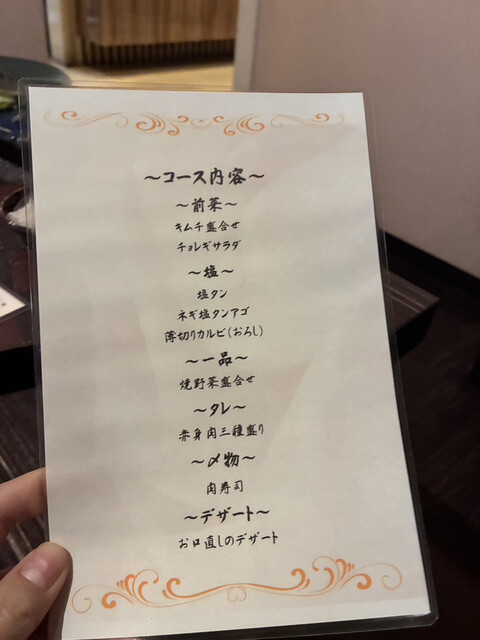 ～コース内容～
～前菜～
キムチ盛合せ
チョレギサラダ
～塩～
塩タン
ネギ塩タンアゴ
薄切りカルビ(おろし)
～一品～
焼野菜盛合せ
～タレ～
赤身肉三種盛り
～〆物～
肉寿司
～デザート～
お口直しのデザート